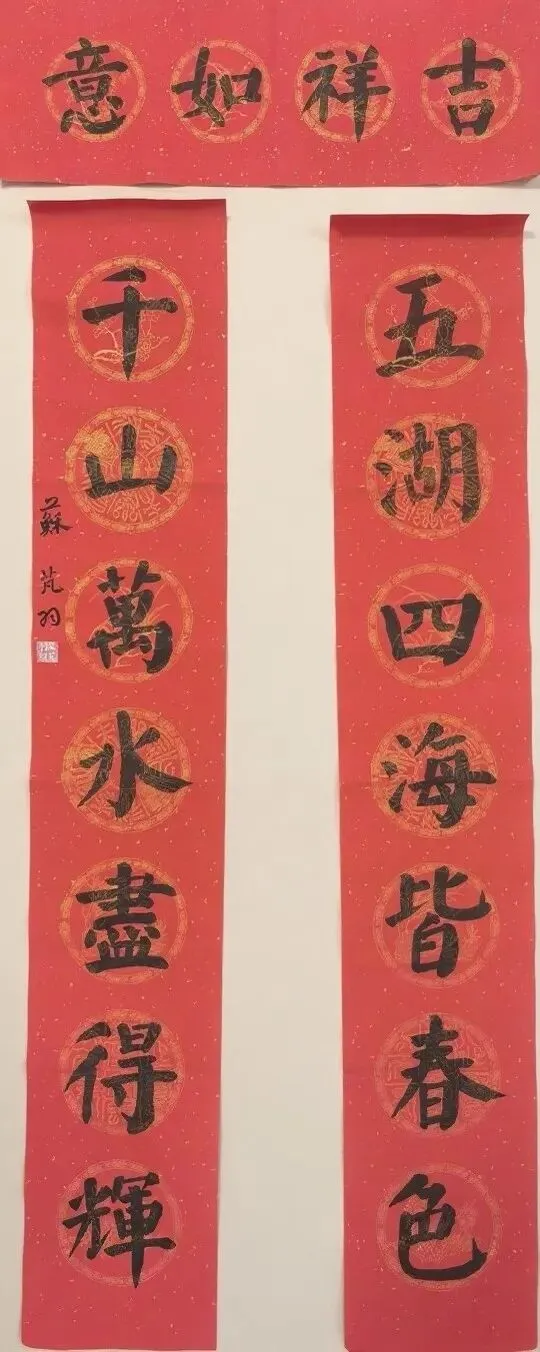 吉祥如意
五湖四海皆春色
千山萬水盡得輝
蘇芃羽